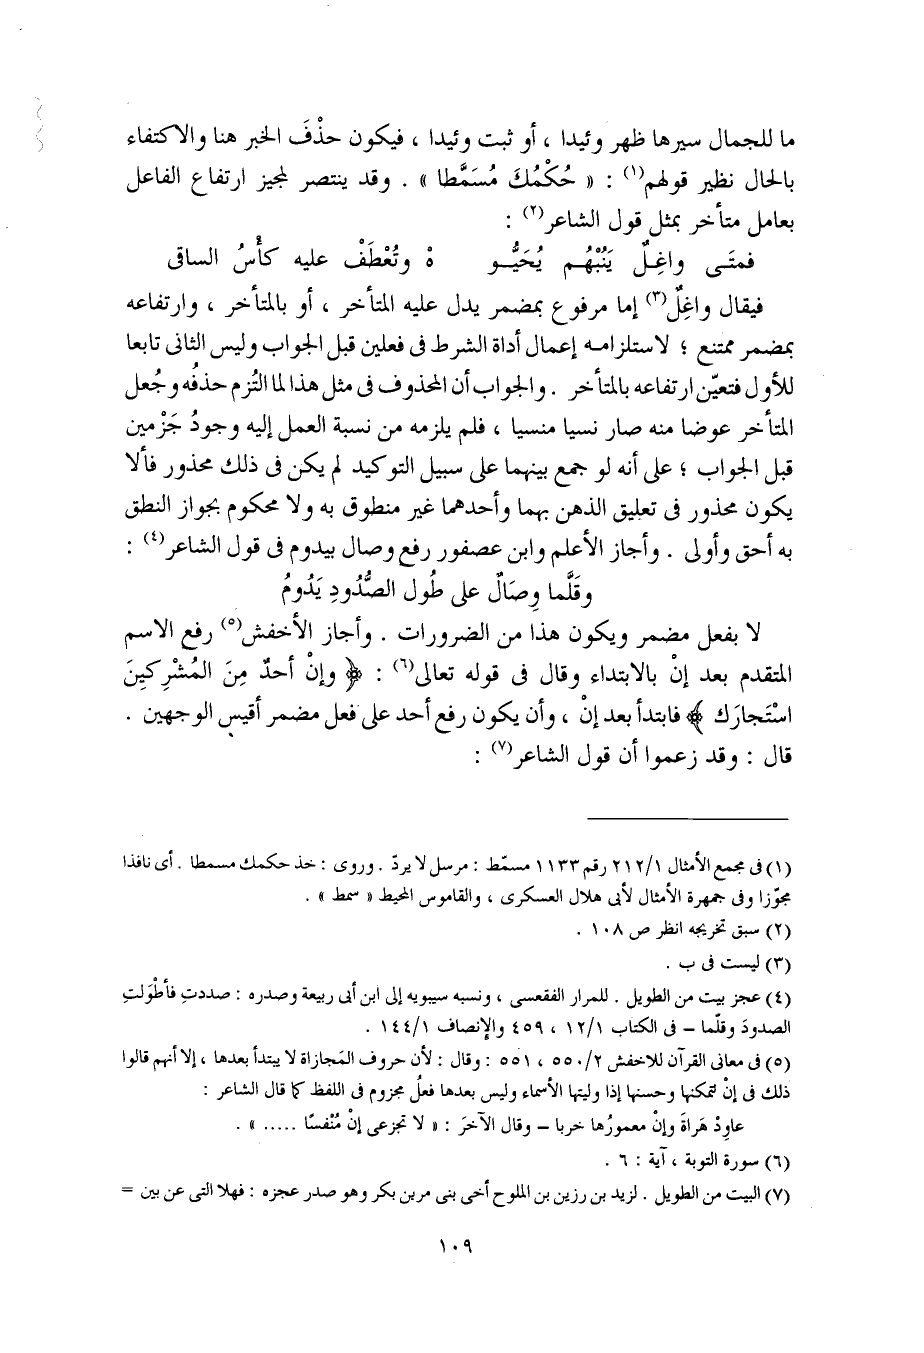 ما للجمال سيرها ظهر وئيدا ، أو ثبت وئيدا ، فيكون حذْفَ الخبر هنا والاكتفاء
بالحال نظير قولهم(١) : « حُكْمُكَ مُسَمَّطا » . وقد ينتصر لمجيز ارتفاع الفاعل
بعامل متأخر بمثل قول الشاعر(٢) :
فمتَـى واغِـلٌ يَنُبْهُـم يُحَيُّـو هُ وتُعْطَفْ عليه كأْسُ الساقى
فيقال واغِلٌ(٣) إما مرفوع بمضمر يدل عليه المتأخر ، أو بالمتأخر ، وارتفاعه
بمضمر ممتنع ؛ لاستلزامه إعمال أداة الشرط فى فعلين قبل الجواب وليس الثانى تابعا
للأول فتعيّن ارتفاعه بالمتأخر . والجواب أن المحذوف فى مثل هذا لما التُزم حذفُه وجُعل
المتأخر عوضا منه صار نسيا منسيا ، فلم يلزمه من نسبة العمل إليه وجودُ جَزْمين
قبل الجواب ؛ على أنه لو جمع بينهما على سبيل التوكيد لم يكن فى ذلك محذور فألا
يكون محذور فى تعليق الذهن بهما وأحدهما غير منطوق به ولا محكوم بجواز النطق
به أحق وأولى . وأجاز الأعلم وابن عصفور رفع وصال بيدوم فى قول الشاعر(٤) :
وقَلَّما وِصَالٌ على طُول الصُّدُودِ يَدُومُ
لا بفعل مضمر ويكون هذا من الضرورات . وأجاز الأخفش(٥) رفع الاسم
المتقدم بعد إنْ بالابتداء وقال فى قوله تعالى(٦) : ﴿ وإنْ أحدٌ مِنَ المُشْرِكِينَ
اسْتَجارَك ﴾ فابتدأ بعد إنْ ، وأن يكون رفع أحد على فعل مضمر أقيس الوجهين .
قال : وقد زعموا أن قول الشاعر(٧) :
(١) فى مجمع الأمثال ٢١٢/١ رقم ١١٣٣ مسمّط : مرسل لا يردّ . وروى : خذ حكمك مسمطا . أى نافذا
مجوّزا وفى جمهرة الأمثال لأبى هلال العسكرى ، والقاموس المحيط « سمط » .
(٢) سبق تخريجه انظر ص ١٠٨ .
(٣) ليست فى ب .
(٤) عجز بيت من الطويل . للمرار الفقعسى ، ونسبه سيبويه إلى ابن أبى ربيعة وصدره : صددتِ فأطْوَلتِ
الصدودَ وقلّما – فى الكتاب ١٢/١ ، ٤٥٩ والإنصاف ١٤٤/١ .
(٥) فى معانى القرآن للاخفش ٥٥٠/٢ ، ٥٥١ : وقال : لأن حروف المَجازاة لا يبتدأ بعدها ، إلا أنهم قالوا
ذلك فى إنْ لتمكنها وحسنها إذا وليتها الأسماء وليس بعدها فعلُ مجزوم فى اللفظ كما قال الشاعر :
عاوِدْ هَراةَ وإنْ معمورُها خربا – وقال الآخرَ : « لا تجزعى إنْ مُنْفسًا ..... » .
(٦) سورة التوبة ، آية : ٦ .
(٧) البيت من الطويل . لزيد بن رزين بن الملوح أخى بنى مر بن بكر وهو صدر عجزه : فهلا التى عن بين =
١٠٩